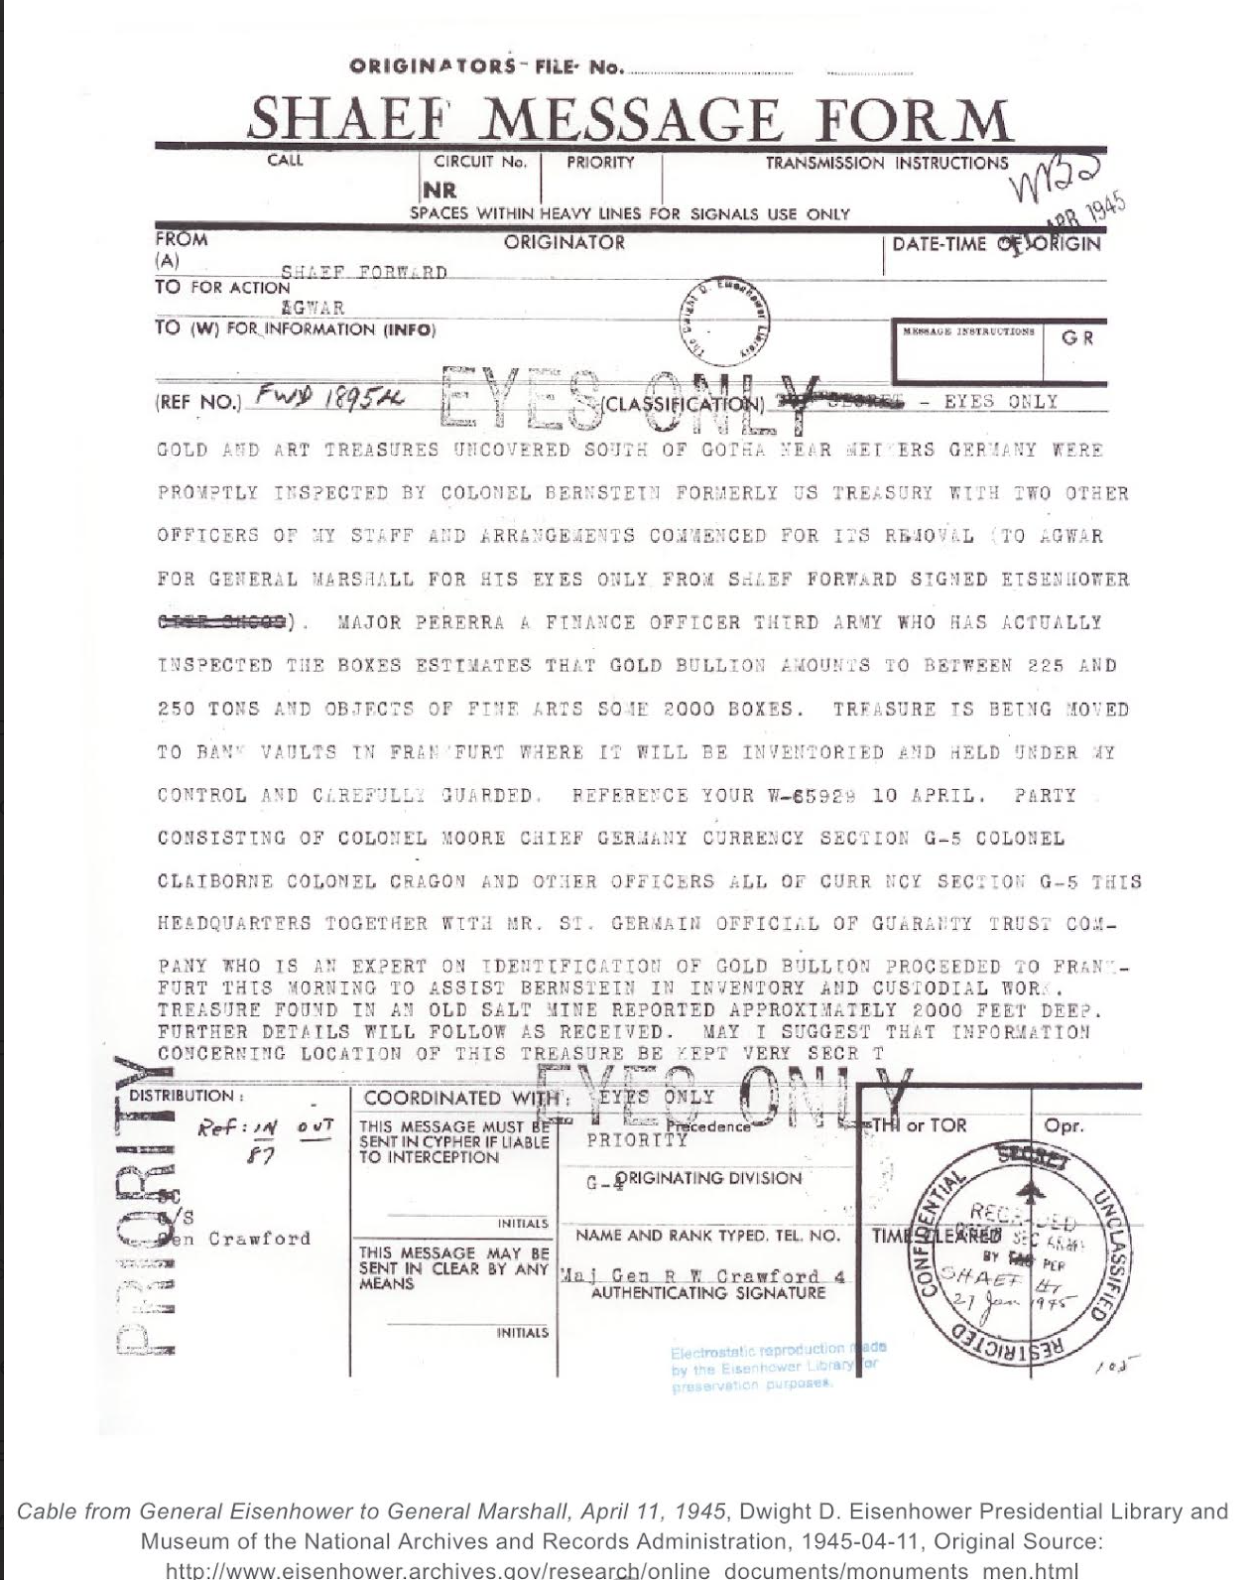 ORIGINATORS- FILE- No.
SHAEF MESSAGE FORM
CALL CIRCUIT No. PRIORITY TRANSMISSION INSTRUCTIONS
NR
APR 1945
SPACES WITHIN HEAVY LINES FOR SIGNALS USE ONLY
FROM ORIGINATOR DATE-TIME OF ORIGIN
(A) SHAEF FORWARD
TO FOR ACTION
AGWAR
The Dwight D. Eisenhower Library
TO (W) FOR INFORMATION (INFO) MESSAGE INSTRUCTIONS GR
EYES ONLY
(REF NO.) FWD 18954 (CLASSIFICATION) TOP SECRET - EYES ONLY
GOLD AND ART TREASURES UNCOVERED SOUTH OF GOTHA NEAR MERKERS GERMANY WERE
PROMPTLY INSPECTED BY COLONEL BERNSTEIN FORMERLY US TREASURY WITH TWO OTHER
OFFICERS OF MY STAFF AND ARRANGEMENTS COMMENCED FOR ITS REMOVAL (TO AGWAR
FOR GENERAL MARSHALL FOR HIS EYES ONLY FROM SHAEF FORWARD SIGNED EISENHOWER
). MAJOR PERERRA A FINANCE OFFICER THIRD ARMY WHO HAS ACTUALLY
INSPECTED THE BOXES ESTIMATES THAT GOLD BULLION AMOUNTS TO BETWEEN 225 AND
250 TONS AND OBJECTS OF FINE ARTS SOME 2000 BOXES. TREASURE IS BEING MOVED
TO BANK VAULTS IN FRANKFURT WHERE IT WILL BE INVENTORIED AND HELD UNDER MY
CONTROL AND CAREFULLY GUARDED. REFERENCE YOUR W-65929 10 APRIL. PARTY
CONSISTING OF COLONEL MOORE CHIEF GERMANY CURRENCY SECTION G-5 COLONEL
CLAIBORNE COLONEL CRAGON AND OTHER OFFICERS ALL OF CURR NCY SECTION G-5 THIS
HEADQUARTERS TOGETHER WITH MR. ST. GERMAIN OFFICIAL OF GUARANTY TRUST COM-
PANY WHO IS AN EXPERT ON IDENTIFICATION OF GOLD BULLION PROCEEDED TO FRANK-
FURT THIS MORNING TO ASSIST BERNSTEIN IN INVENTORY AND CUSTODIAL WORK.
TREASURE FOUND IN AN OLD SALT MINE REPORTED APPROXIMATELY 2000 FEET DEEP.
FURTHER DETAILS WILL FOLLOW AS RECEIVED. MAY I SUGGEST THAT INFORMATION
CONCERNING LOCATION OF THIS TREASURE BE KEPT VERY SECR T
EYES ONLY
PRIORITY
DISTRIBUTION: COORDINATED WITH: EYES ONLY THI or TOR Opr.
Ref: IN OUT
87
SC
C/S
Gen Crawford
THIS MESSAGE MUST BE
SENT IN CYPHER IF LIABLE
TO INTERCEPTION
INITIALS
THIS MESSAGE MAY BE
SENT IN CLEAR BY ANY
MEANS
INITIALS
Precedence
PRIORITY
G-4 ORIGINATING DIVISION
NAME AND RANK TYPED. TEL. NO.
Maj Gen R W Crawford 4
AUTHENTICATING SIGNATURE
TIME CLEARED
CONFIDENTIAL SECRET UNCLASSIFIED RESTRICTED
SEC ARMY
BY PER
SHAEF
27 Jan 1945
105
Electrostatic reproduction made
by the Eisenhower Library for
preservation purposes.
Cable from General Eisenhower to General Marshall, April 11, 1945, Dwight D. Eisenhower Presidential Library and
Museum of the National Archives and Records Administration, 1945-04-11, Original Source:
http://www.eisenhower.archives.gov/research/online_documents/monuments_men.html